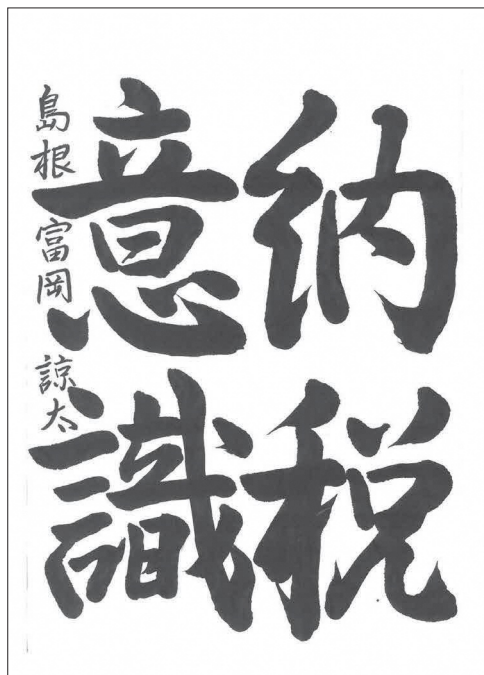 納税
意識
島根 富岡 諒太